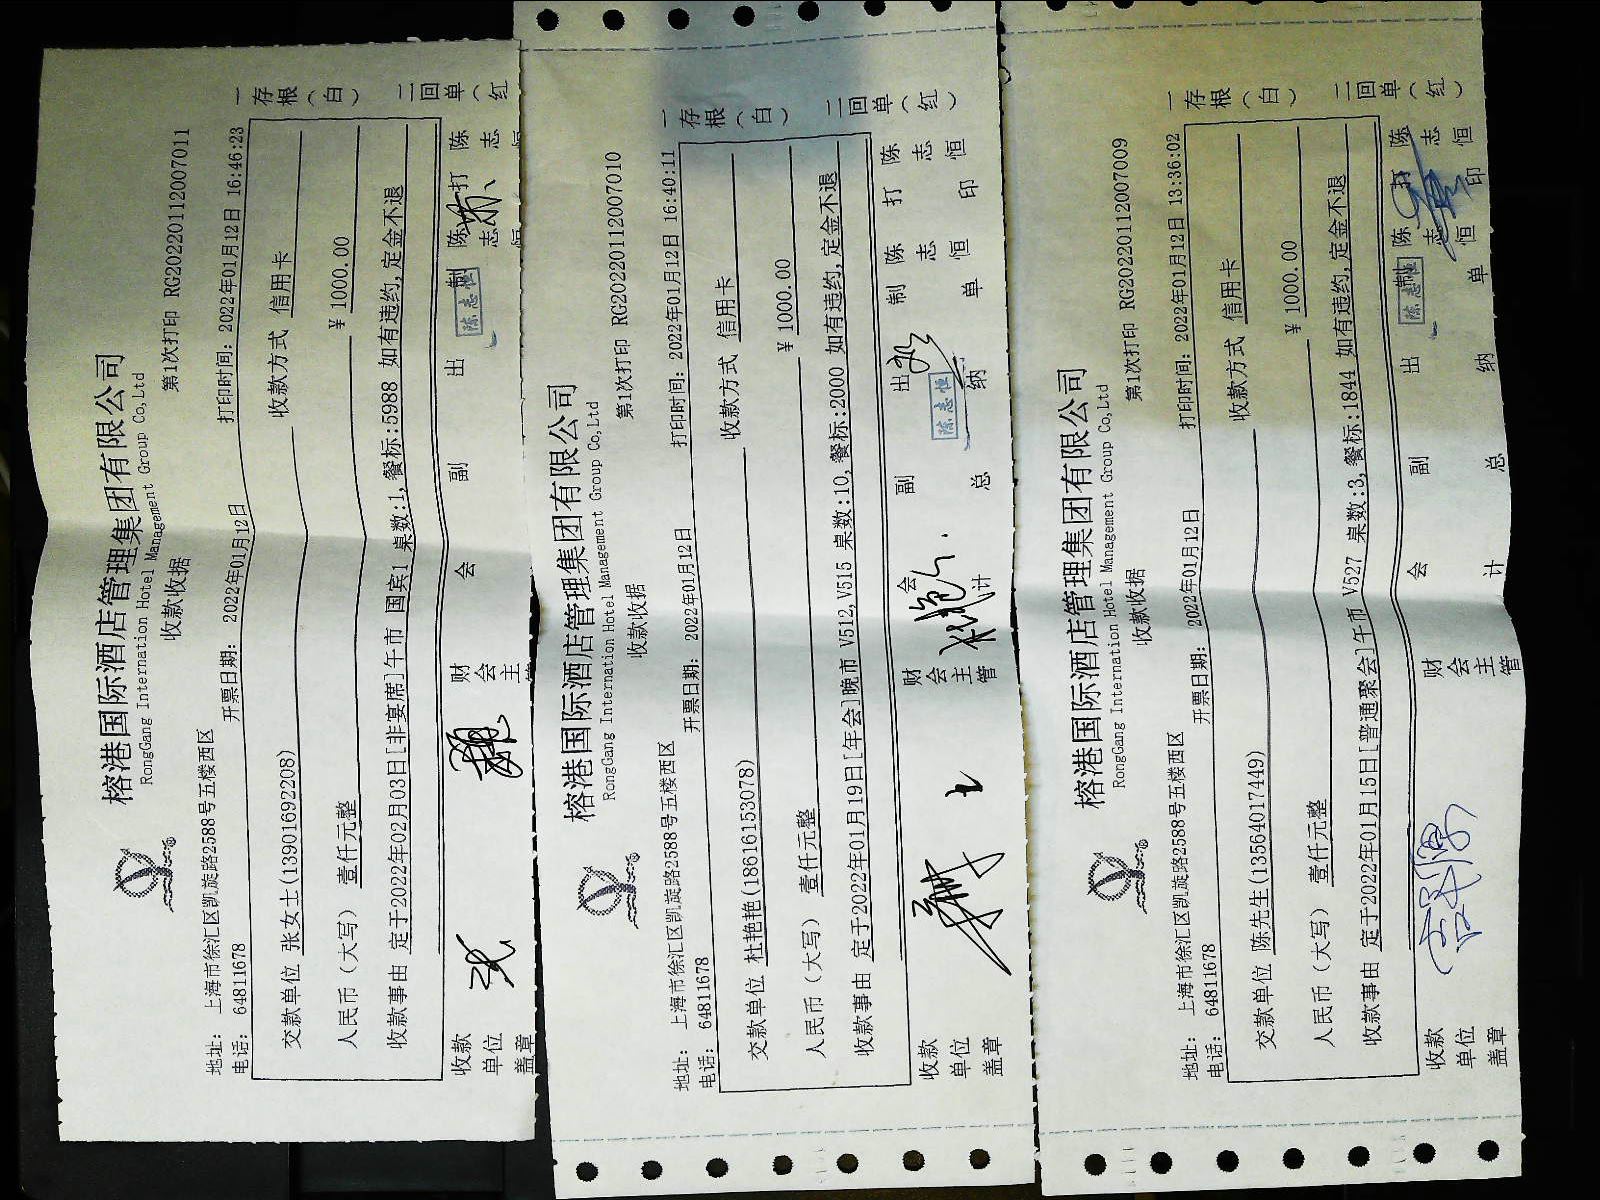 榕港国际酒店管理集团有限公司
RongGang Internation Hotel Management Group Co,Ltd
收款收据
第1次打印 RG20220112007011
地址： 上海市徐汇区凯旋路2588号五楼西区
电话： 64811678
开票日期： 2022年01月12日
打印时间：2022年01月12日 16:46:23
交款单位 张女士(13901692208)
收款方式 信用卡
人民币（大写） 壹仟元整
￥1000.00
收款事由 定于2022年02月03日[非宴席]午市 国宾1 桌数:1,餐标:5988 如有违约,定金不退
一存根（白）
二回单（红
收款单位盖章
财会主管
会
副
出
制
陈志恒
打
陈志恒
陈志恒
榕港国际酒店管理集团有限公司
RongGang Internation Hotel Management Group Co,Ltd
收款收据
第1次打印 RG20220112007010
地址： 上海市徐汇区凯旋路2588号五楼西区
电话： 64811678
开票日期： 2022年01月12日
打印时间：2022年01月12日 16:40:11
交款单位 杜艳艳(18616153078)
收款方式 信用卡
人民币（大写） 壹仟元整
￥1000.00
收款事由 定于2022年01月19日[年会]晚市 V512,V515 桌数:10,餐标:2000 如有违约,定金不退
一存根（白）
二回单（红）
收款单位盖章
财会主管
会计
副总
出纳
陈志恒
制单
陈志恒
打印
陈志恒
榕港国际酒店管理集团有限公司
RongGang Internation Hotel Management Group Co,Ltd
收款收据
第1次打印 RG20220112007009
地址： 上海市徐汇区凯旋路2588号五楼西区
电话： 64811678
开票日期： 2022年01月12日
打印时间：2022年01月12日 13:36:02
交款单位 陈先生(13564017449)
收款方式 信用卡
人民币（大写） 壹仟元整
￥1000.00
收款事由 定于2022年01月15日[普通聚会]午市 V527 桌数:3,餐标:1844 如有违约,定金不退
一存根（白）
二回单（红）
收款单位盖章
财会主管
会计
副总
出纳
陈志恒
制单
陈志恒
打印
陈志恒